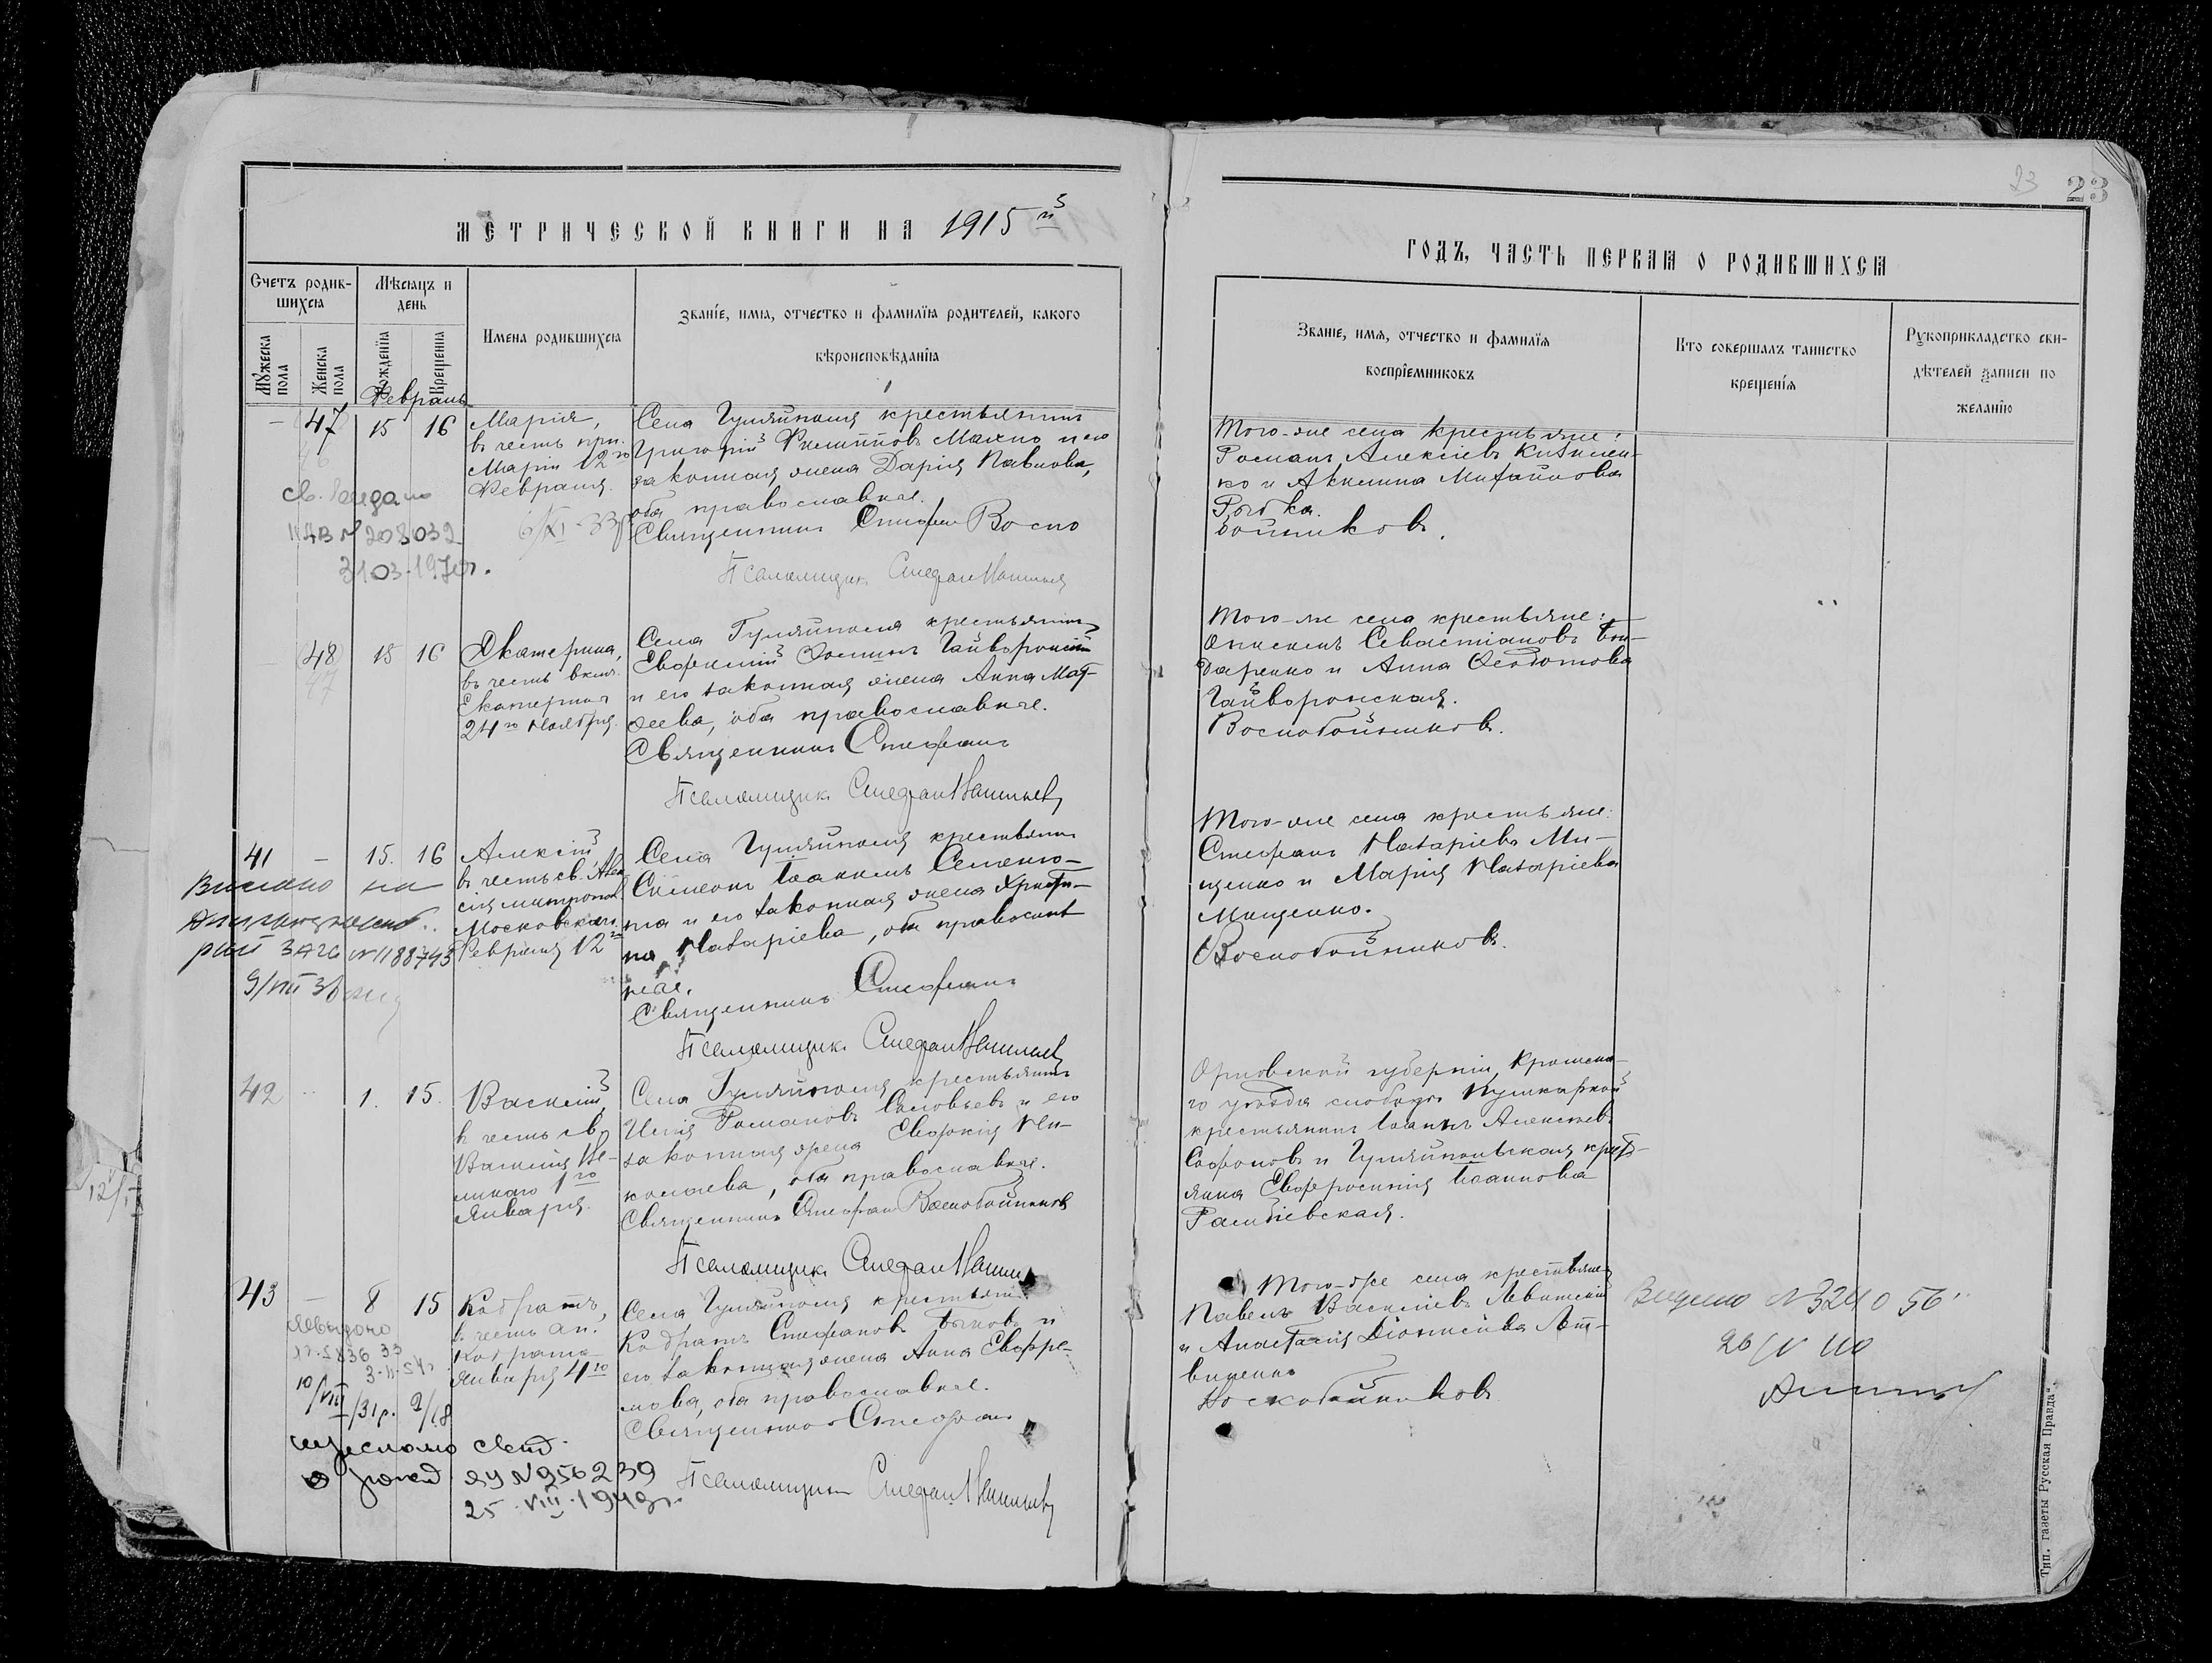 23
23
МЕТРИЧЕСКОЙ КНИГИ НА 1915й
ГОДЪ, ЧАСТЬ ПЕРВАЯ О РОДИВШИХСЯ
Счетъ родив-
шихся
Мужеска пола
Женска пола
Мѣсяцъ и
день
Рожденїя
Крещенїя
Имена родившихся
Званїе, имя, отчество и фамилїя родителей, какого
вѣроисповѣданїя
Званїе, имя, отчество и фамилїя
воспрїемниковъ
Кто совершалъ таинство
крещенїя
Рукоприкладство сви-
дѣтелей записи по
желанїю
Февраль
- 47 15 16
Марія,
въ честь прп.
Маріи 12го
Февраля.
Села Гуляйполя крестьянинъ
Григорій Филипповъ Махно и его
законная жена Дарія Павлова,
оба православные.
Священникъ Стефанъ Воско
Псаломщик Стефан
Того-же села крестьяне:
Романъ Алексіевъ Кибилен-
ко и Акилина Михайлова
Рыбка.
бойниковъ.
№ 208032
31.03.1970г.
48 15 16
47
Екатерина,
въ честь вмч.
Екатерины
24го Ноября.
Села Гуляйполя крестьянинъ
Евфимій Гайворонскій
и его законная жена Анна Мат-
ѳеева, оба православные.
Священникъ Стефанъ
Псаломщик Стефан
Того-же села крестьяне:
Севастіановъ Бон-
даренко и Анна Ѳедотова
Гайворонская.
Воскобойниковъ.
41 - 15. 16
Алексій,
въ честь св. Алек
сія митропол.
Московскаго
Февраля 12го
Села Гуляйполя крестьянинъ
Симеонъ Іоанновъ Семеню-
та и его законная жена Христи-
на Назаріева, оба православ
ные.
Священникъ Стефанъ
Псаломщик Стефан
Того-же села крестьяне:
Стефанъ Назаріевъ Ми-
щенко и Марія Назаріева
Мищенко.
Воскобойниковъ.
ЗАГС №1188743
42 1. 15.
Василій,
въ честь св.
Василія Ве-
ликаго 1го
Января.
Села Гуляйполя крестьянинъ
Илія Романовъ Соловьевъ и его
законная жена Евфимія Ни-
колаева, оба православные.
Священникъ Стефанъ Воскобойниковъ
Псаломщик Стефан
Орловской губерніи, Кромска-
го уѣзда слободы Пушкарной
крестьянинъ Іоаннъ Алексѣевъ
Сафоновъ и Гуляйпольская крест-
янка Евфросинія Іоаннова
43 - 8 15
Кодратъ,
въ честь ап.
Кодрата
Января 4го
Села Гуляйполя крестьянинъ
Кодратъ Стефановъ Быковъ и
его законная жена Анна Евфре-
мова, оба православные.
Священникъ Стефанъ
Псаломщик Стефан
Того-же села крестьяне
Павелъ Василіевъ Левитскій
и Анастасія Діонисіева Лит-
виненко
Воскобойниковъ
№ 324056
№956239
25.VIII.1949г.
Тип. газеты „Русская Правда“.